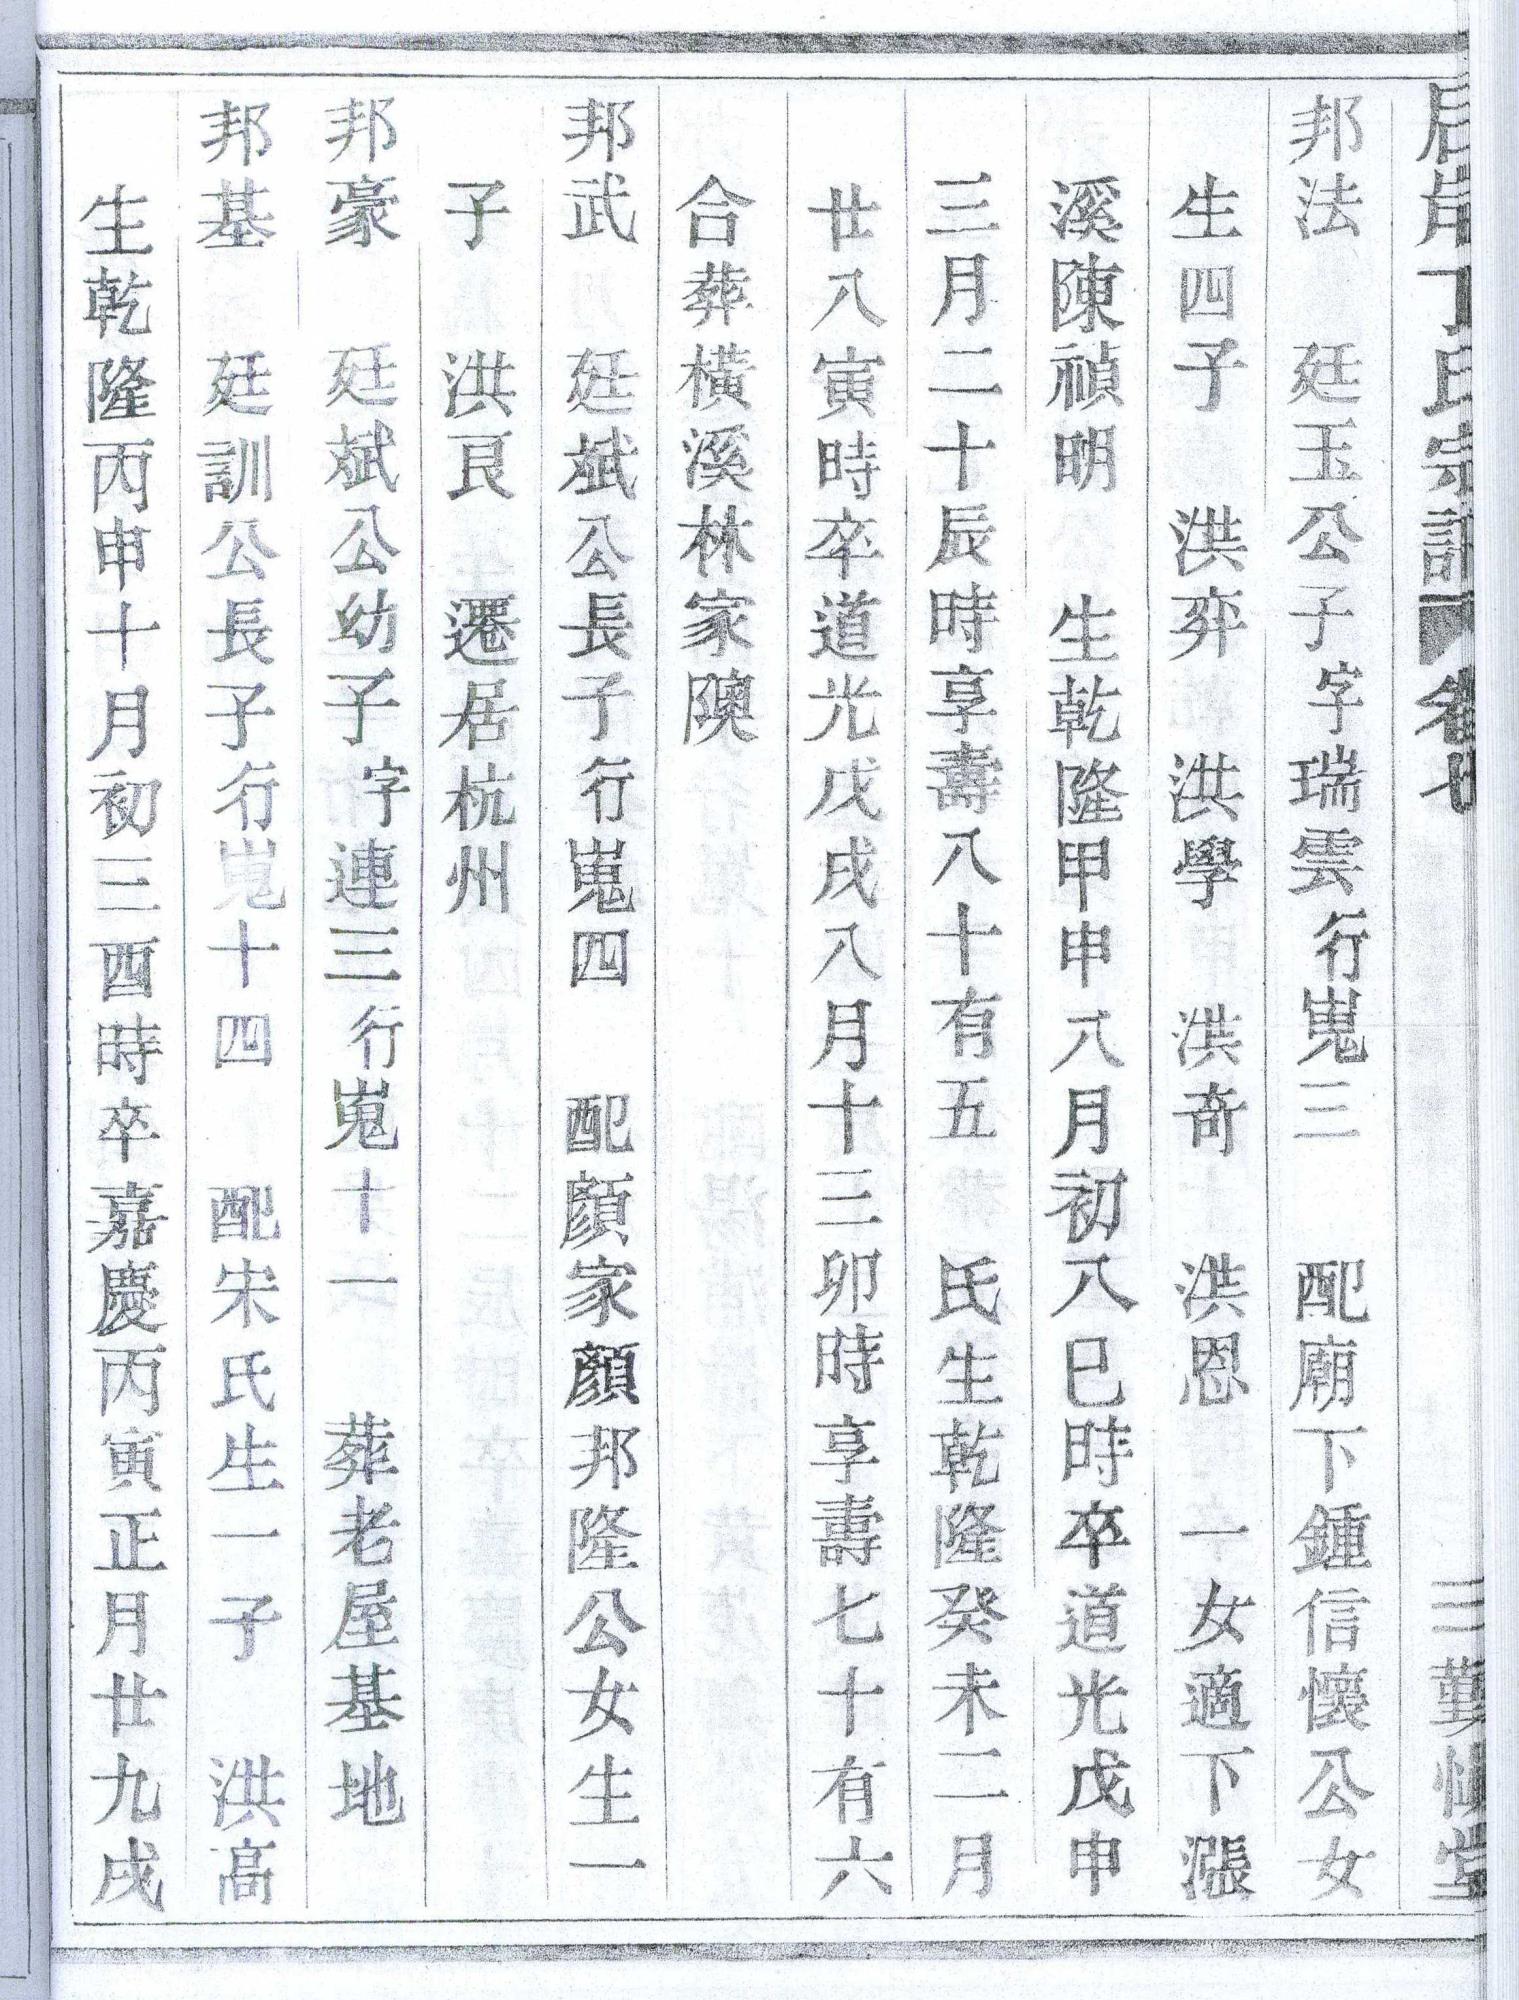 丁氏宗譜 卷七 三 勤慎堂
邦法 廷玉公子字瑞雲行嵬三 配廟下鍾信懷公女
生四子 洪弈 洪學 洪奇 洪恩 一女適下漲
溪陳禎明 生乾隆甲申八月初八巳時卒道光戊申
三月二十辰時享壽八十有五 氏生乾隆癸未二月
廿八寅時卒道光戊戌八月十三卯時享壽七十有六
合葬橫溪林家隩
邦武 廷斌公長子行嵬四 配顏家顏邦隆公女生一
子 洪艮 遷居杭州
邦豪 廷斌公幼子字連三行嵬十一 葬老屋基地
邦基 廷訓公長子行嵬十四 配宋氏生一子 洪高
生乾隆丙申十月初三酉時卒嘉慶丙寅正月廿九戌